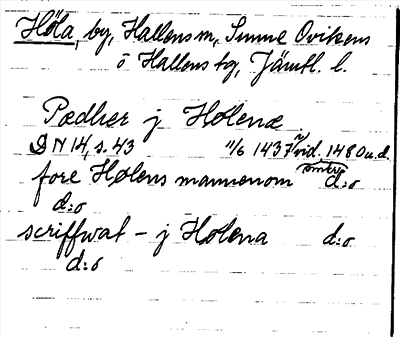 Höla, by, Hallens sn, Sunne Ovikens
o Hallens tg, Jämtl. l.
Pædher j Hølenæ
DN 14, s. 43 11/6 1437 vid. 1480 u.d.
fore Hølens mannenom d:o
d:o
scriffwat - j Høléna d:o
d:o